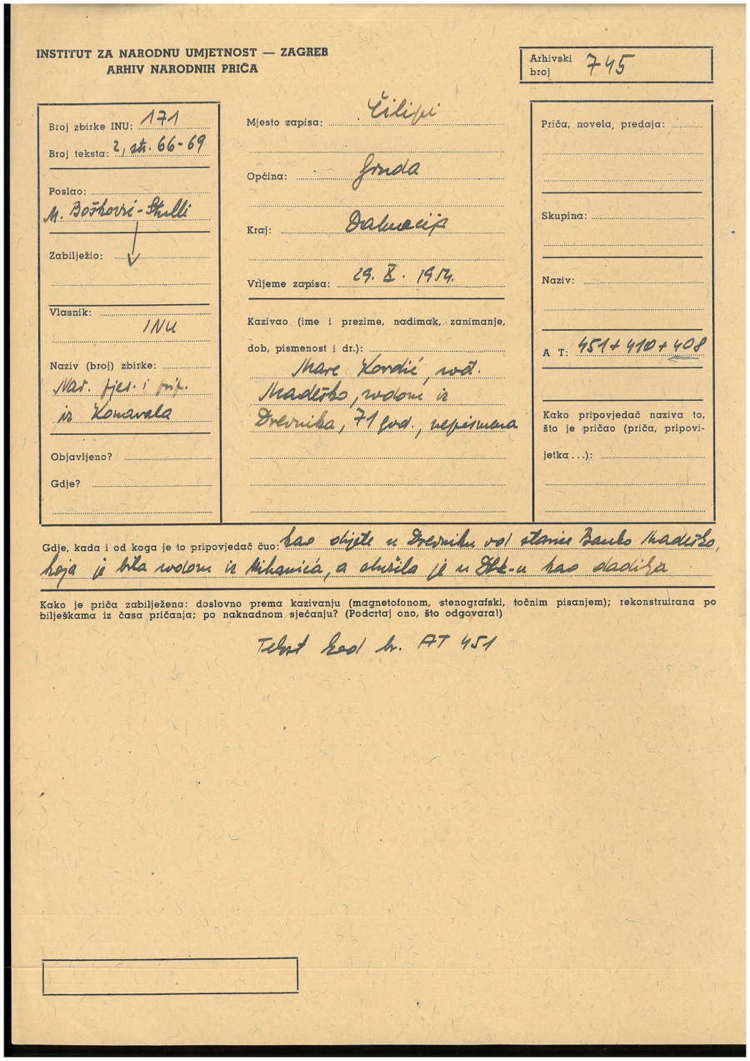 INSTITUT ZA NARODNU UMJETNOST — ZAGREB
ARHIV NARODNIH PRIČA
Arhivski broj 745
Broj zbirke INU: 171
Broj teksta: 2, str. 66-69
Poslao:
M. Bošković-Stulli
Zabilježio:
Vlasnik:
INU
Naziv (broj) zbirke:
Nar. pjes. i prip.
iz Konavala
Objavljeno?
Gdje?
Mjesto zapisa: Čilipi
Općina: Gruda
Kraj: Dalmacija
Vrijeme zapisa: 29. X. 1954.
Kazivao (ime i prezime, nadimak, zanimanje,
dob, pismenost i dr.):
Mare Kordić, rođ.
Madeško, rodom iz
Drvenika, 71 god., nepismena
Priča, novela, predaja:
Skupina:
Naziv:
A T: 451+410+408
Kako pripovjedač naziva to,
što je pričao (priča, pripovi-
jetka...):
Gdje, kada i od koga je to pripovjedač čuo: kao dijete u Drveniku od starice Madeško,
koja je bila rodom iz Mihanića, a služila je u Dbk-u kao dadilja
Kako je priča zabilježena: doslovno prema kazivanju (magnetofonom, stenografski, točnim pisanjem); rekonstruirana po
bilješkama iz časa pričanja; po naknadnom sjećanju? (Podcrtaj ono, što odgovara!)
Tekst kod br. AT 451